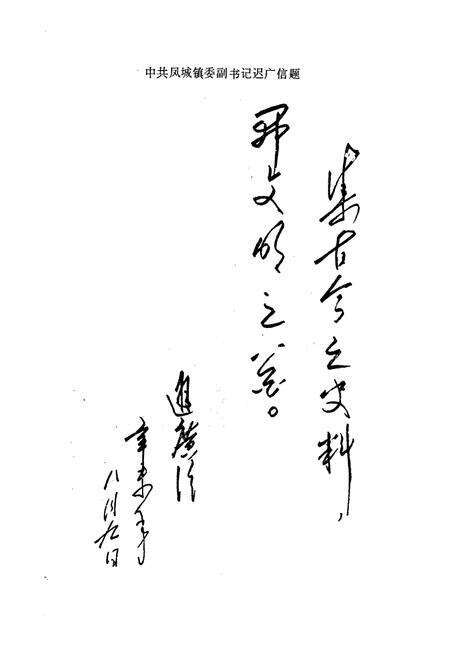 中共凤城镇委副书记迟广信题
集古今之史料，
开文明之花。
迟广信
辛未年
八月九日